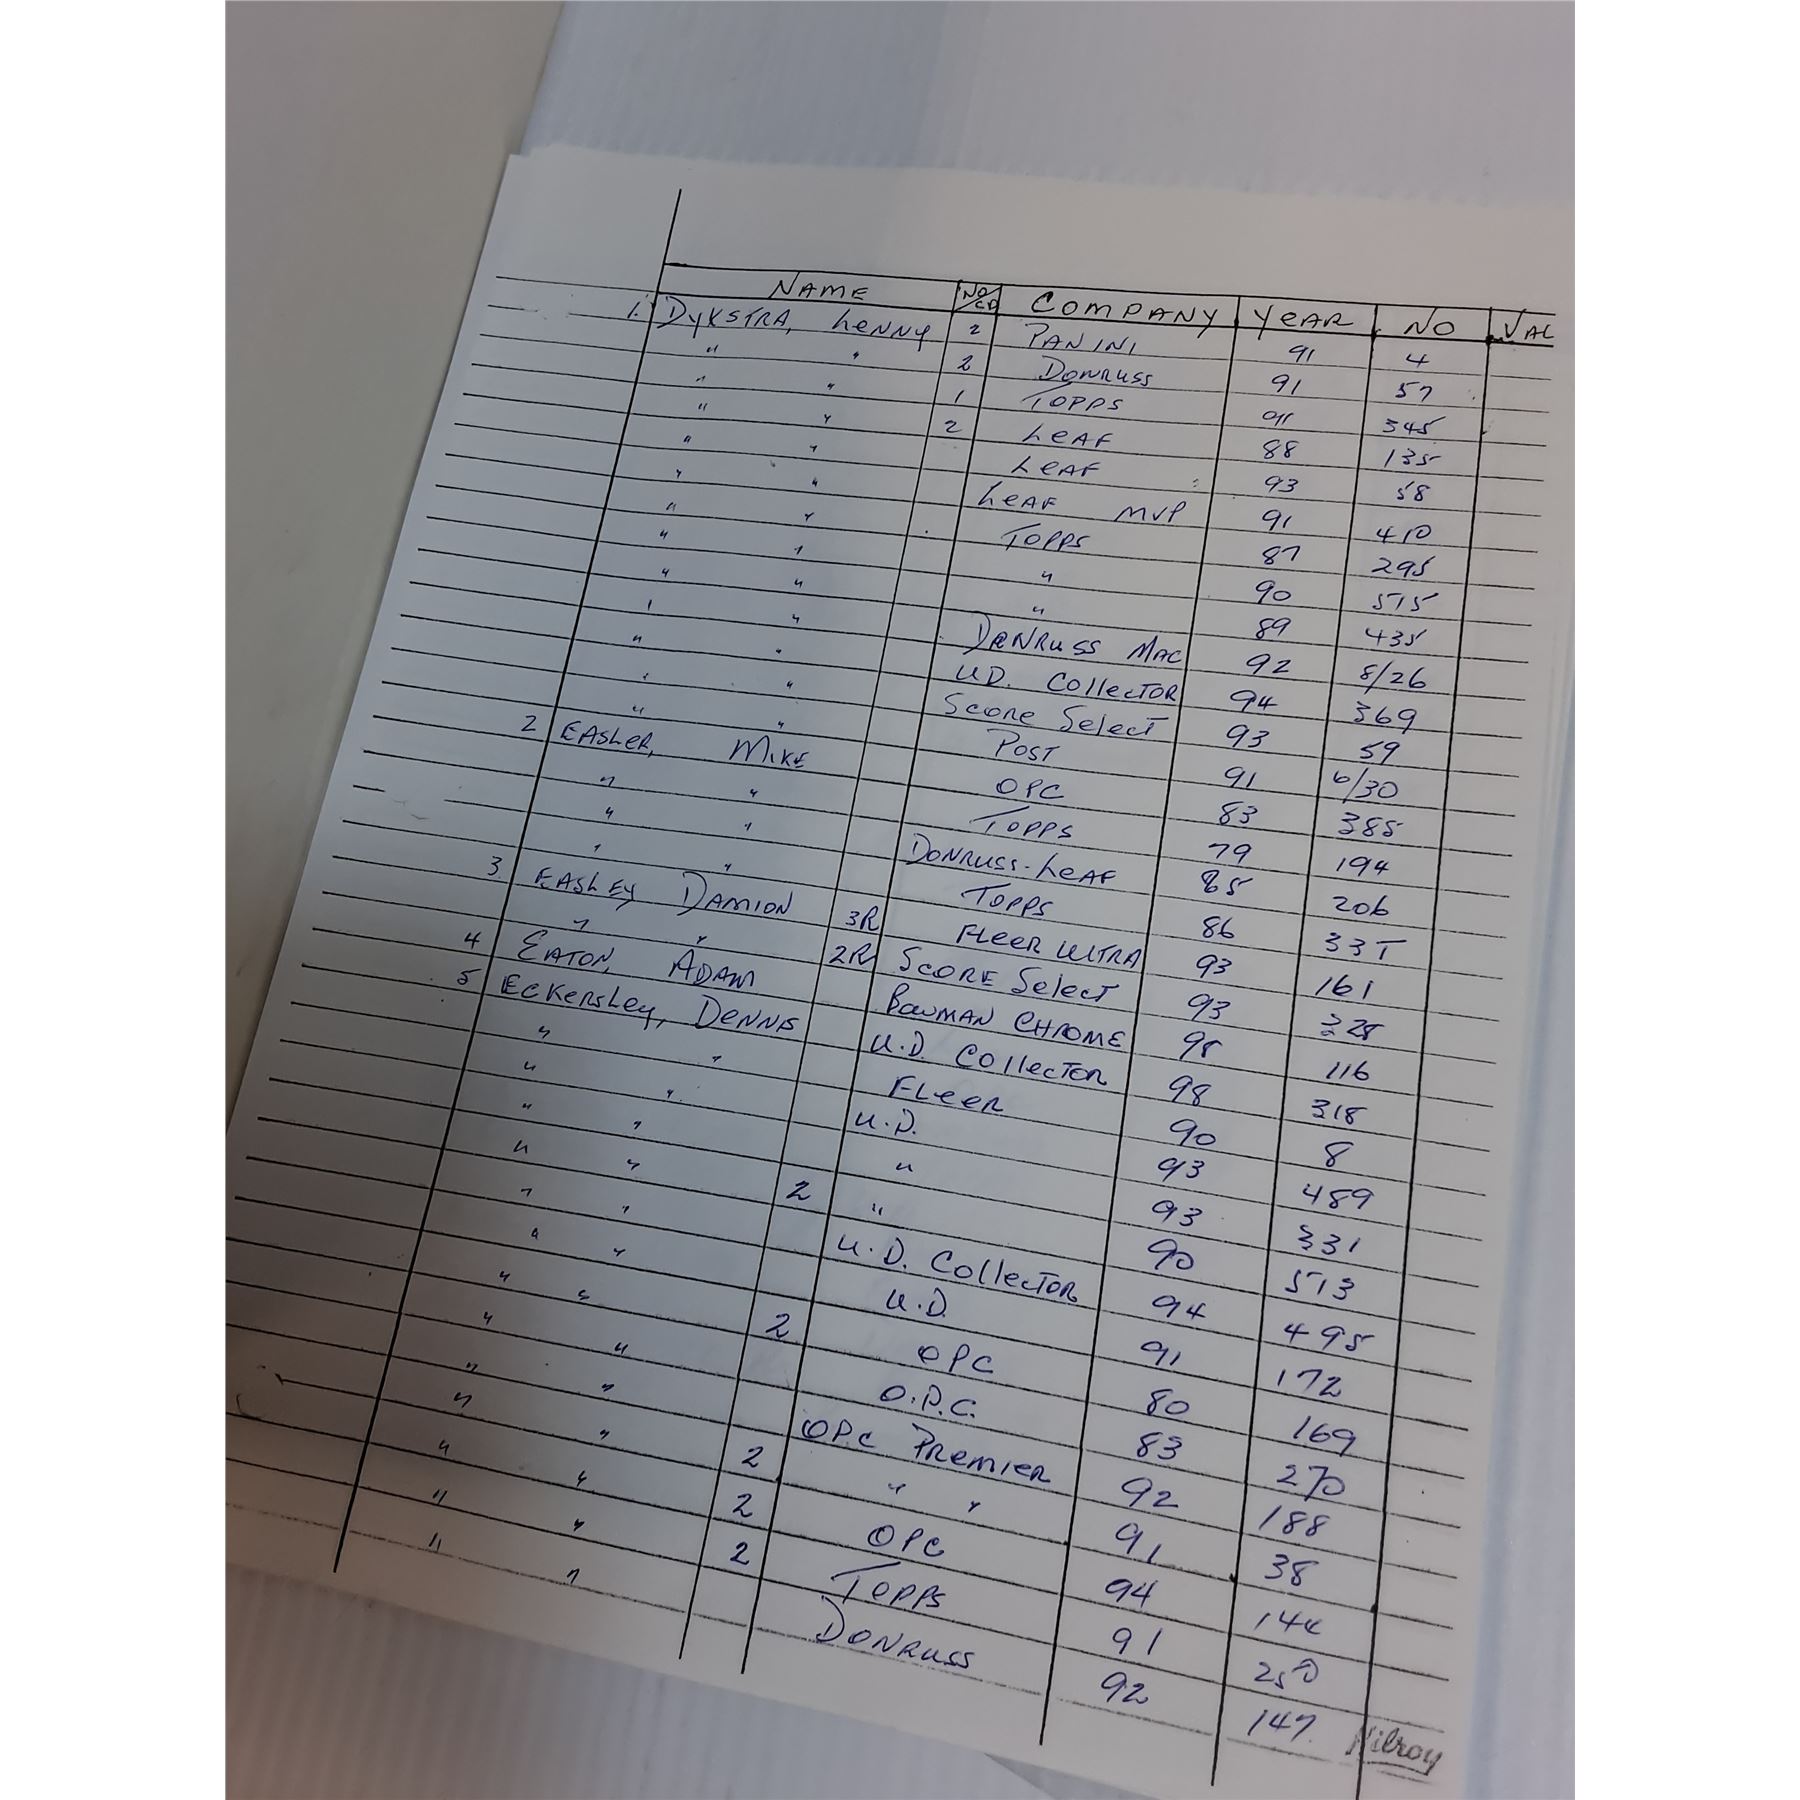 NAME NO/CD COMPANY YEAR NO VAL
1. DYKSTRA, LENNY 2 PANINI 91 4
" " 2 DONRUSS 91 57
" " 1 TOPPS 91 345
" " 2 LEAF 88 135
" " LEAF 93 58
" " LEAF MVP 91 410
" " TOPPS 87 295
" " " 90 515
" " " 89 435
" " DONRUSS MAC 92 8/26
" " U.D. COLLECTOR 94 369
" " SCORE SELECT 93 59
" " POST 91 6/30
2 EASLER, MIKE OPC 83 385
" " TOPPS 79 194
" " DONRUSS-LEAF 85 206
" " TOPPS 86 335
3. EASLEY DAMION 3R FLEER ULTRA 93 161
" " 2R SCORE SELECT 93 328
4 EATON, ADAM BOWMAN CHROME 98 116
5 ECKERSLEY, DENNIS U.D. COLLECTOR 98 318
" " FLEER 90 8
" " U.D. 93 489
" " " 93 331
" " 2 " 90 513
" " U.D. COLLECTOR 94 495
" " U.D. 91 172
" " 2 OPC 80 169
" " O.P.C. 83 270
" " OPC PREMIER 92 188
" " 2 " " 91 38
" " 2 OPC 94 144
" " 2 TOPPS 91 250
" " DONRUSS 92 147
Kilroy